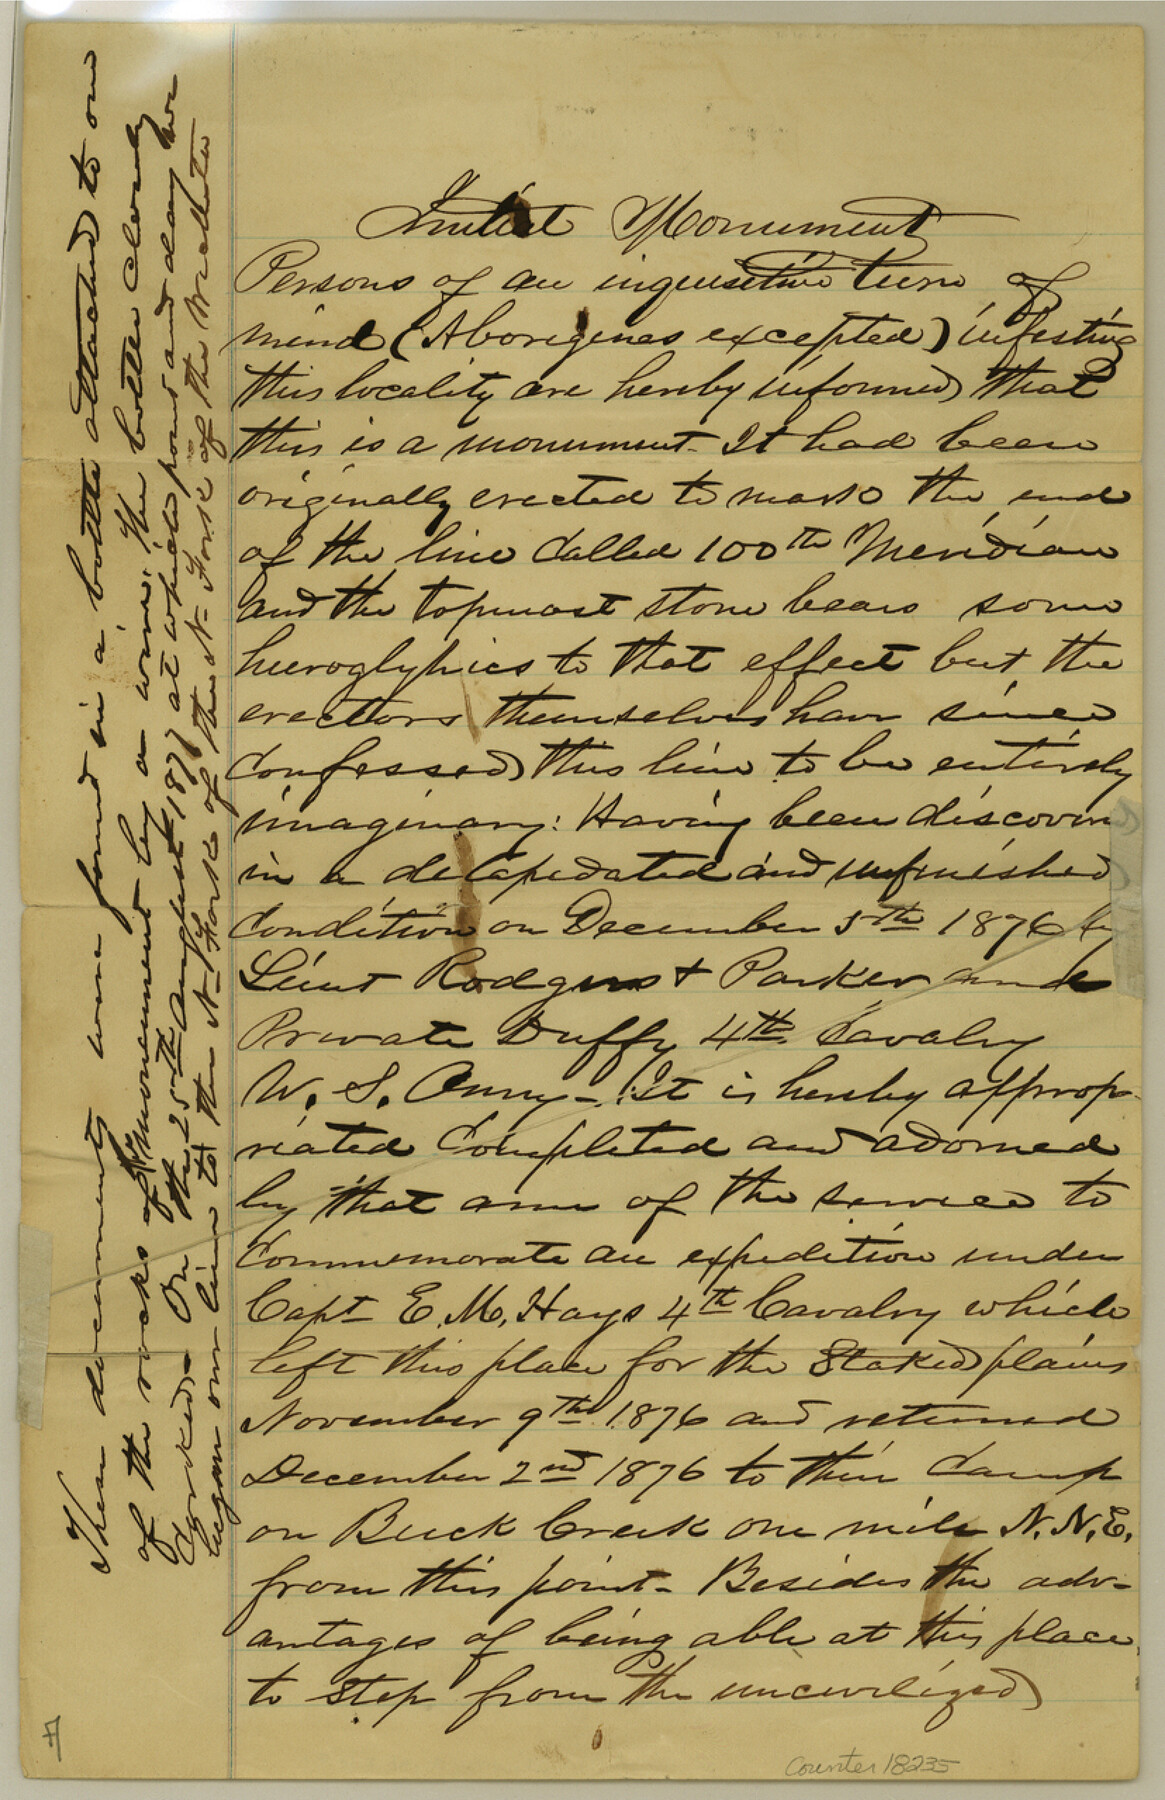 Initial Monument
Persons of an inquisitive turn of
mind (Aborigenes excepted) infesting
this locality are hereby informed that
this is a monument - It had been
originally erected to mark the end
of the line called 100th Meridian
and the topmost stone bears some
hieroglyphics to that effect but the
erectors themselves have since
confessed this line to be entirely
imaginary: Having been discover
in a delapedated and unfinished
condition on December 5th 1876 by
Lieut Rodgers & Parker and
Private Duffy 4th Cavalry
W. S. Army - It is hereby approp-
riated completed and adorned
by that arm of the service to
commemorate an expedition under
Capt E. M. Hays 4th Cavalry which
left this place for the Staked plains
November 9th 1876 and returned
December 2nd 1876 to their camp
on Buck Creek one mile N. N. E.
from this point - Besides the adv-
antages of being able at this place
to step from the uncivilized
These documents were found in a bottle attached to one
of the rocks of the monument by a wire. The bottle closely
corked - On the 25th August 1877 at which point and day we
began our line to the N- Fork of the N- Fork of the Wichita
A
Counter 18235